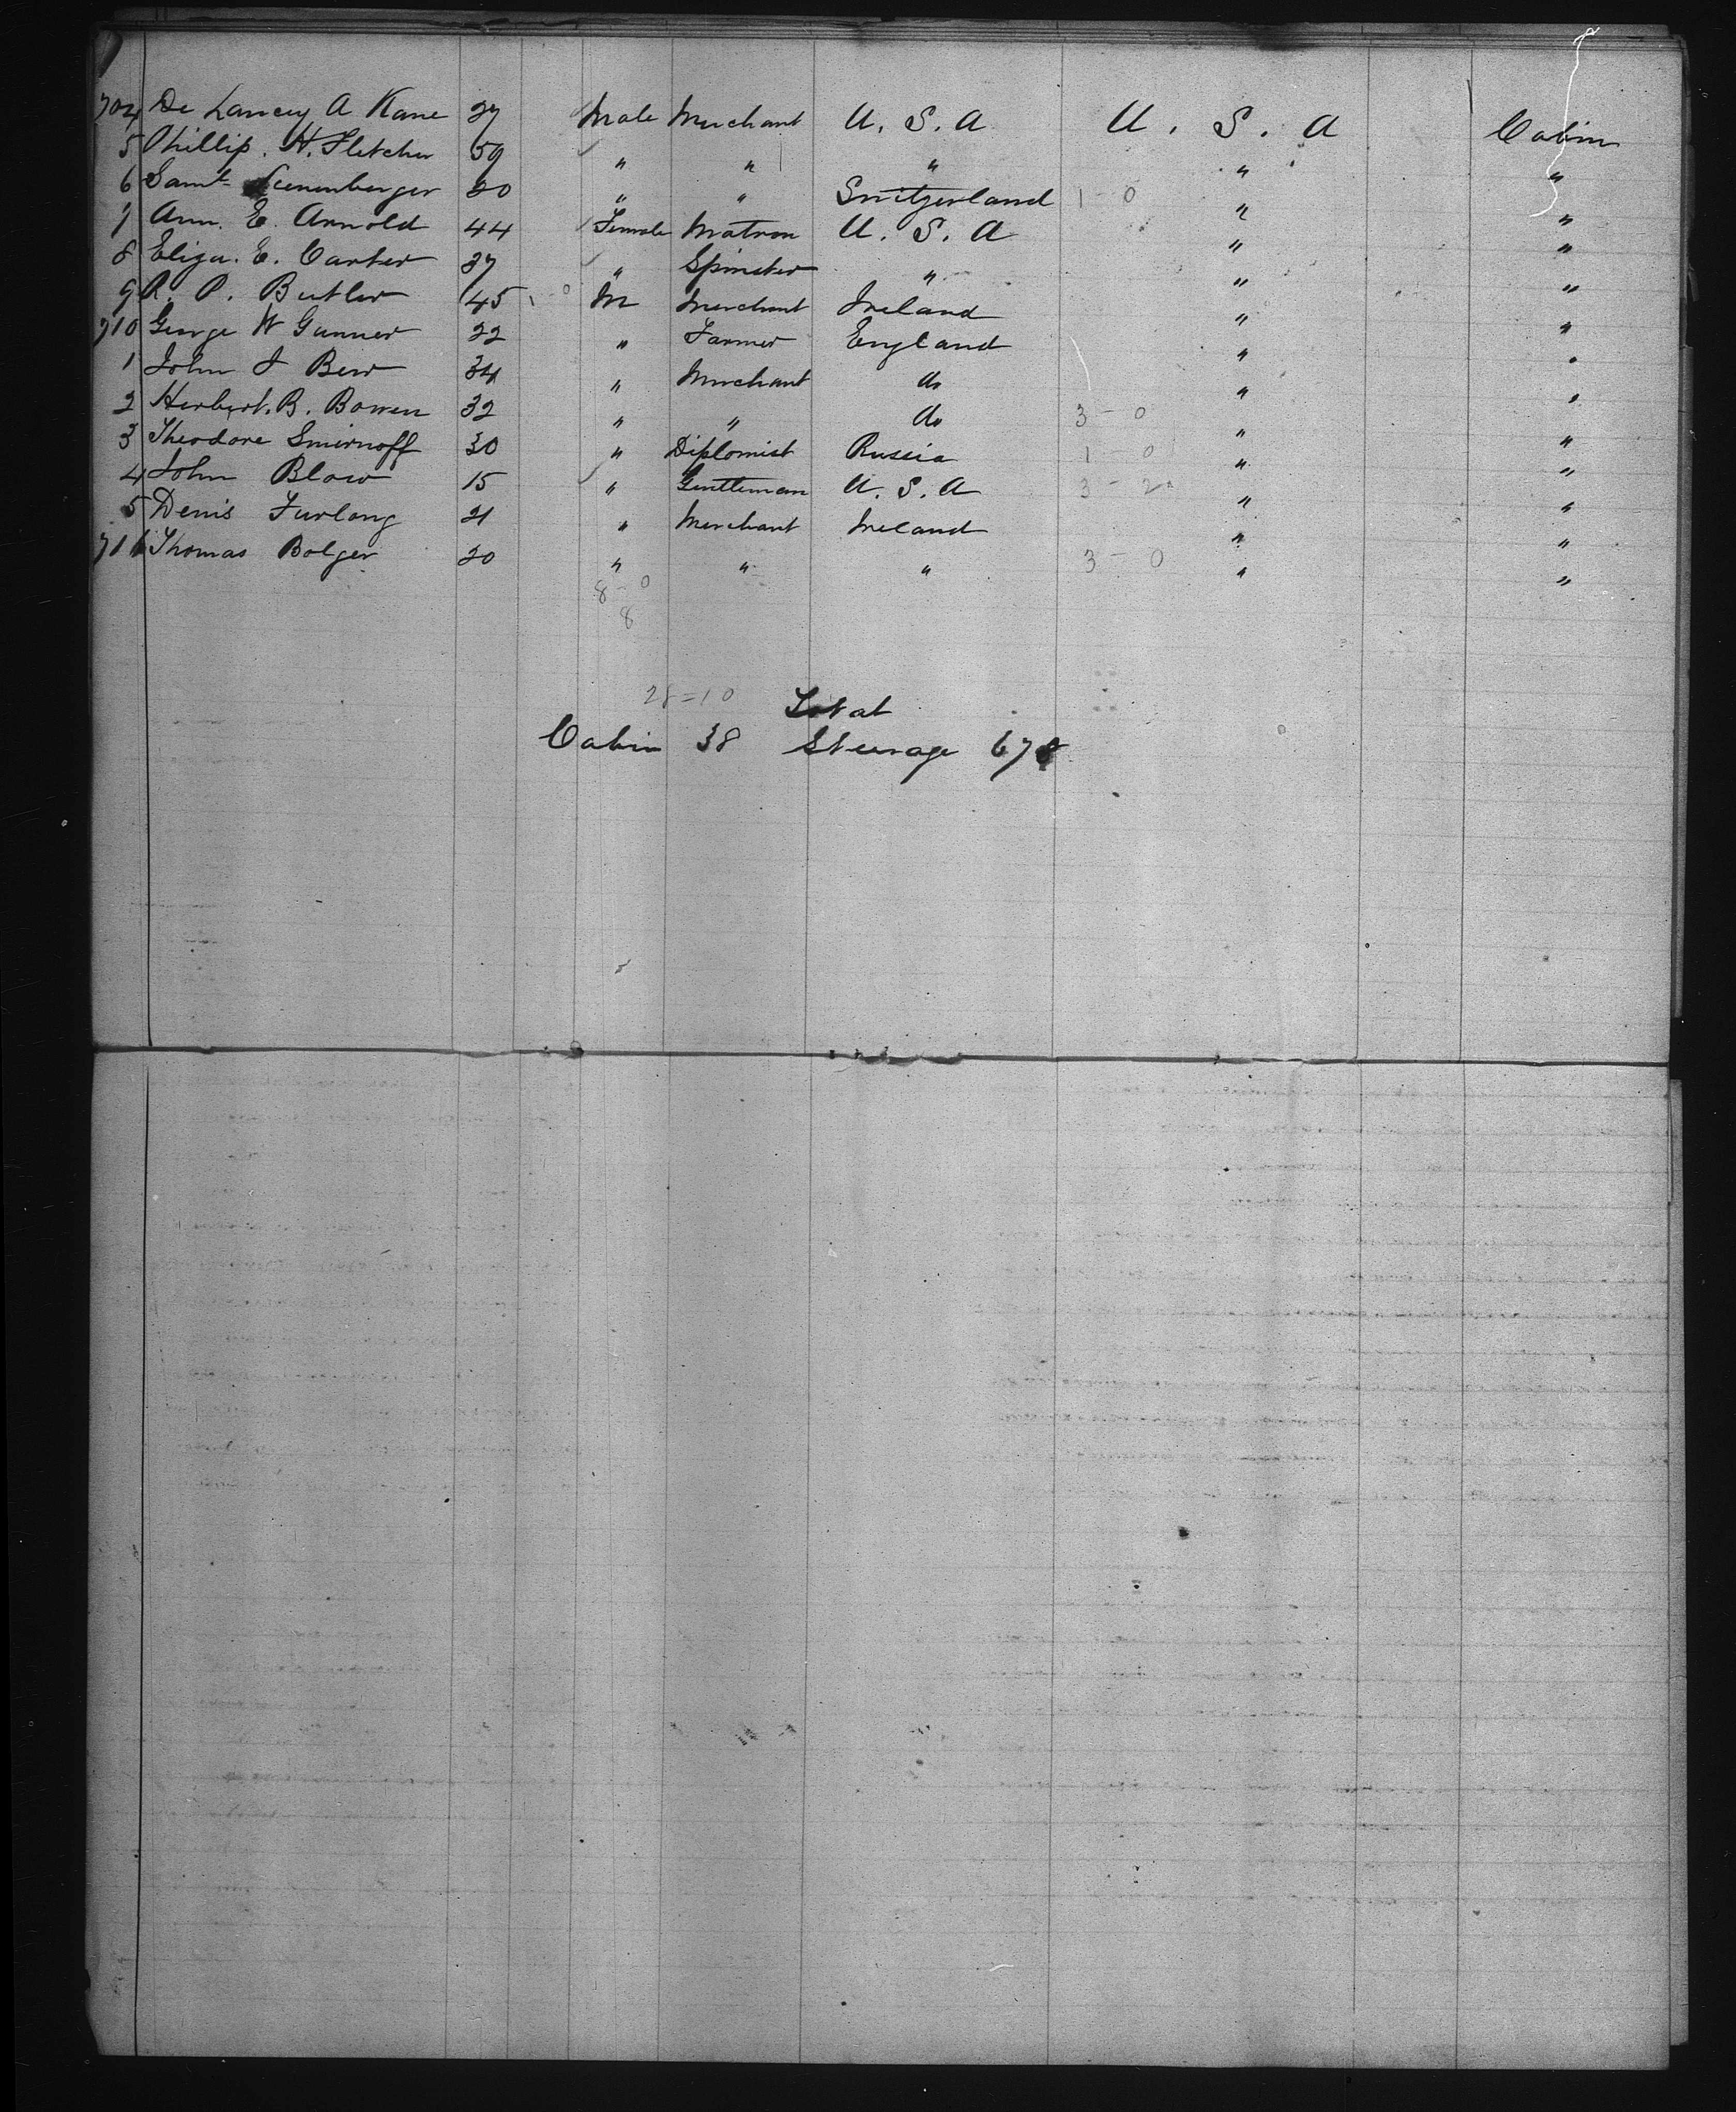 704 De Lancey A Kane 27 Male Merchant U. S. A U. S. A Cabin
5 Phillip. H. Fletcher 59 " " " " "
6 Saml. Luenenberger 20 " " Switzerland 1 - 0 " "
7 Ann. E. Arnold 44 Female Matron U. S. A " "
8 Eliza. E. Carter 37 " Spinster " " "
9 R. P. Butler 45 M Merchant Ireland " "
710 George W Gunner 22 " Farmer England " "
1 John J Bew 34 " Merchant do " "
2 Herbert. B. Bowen 32 " " do 3 - 0 " "
3 Theodore Smirnoff 30 " Diplomist Russia 1 0 " "
4 John Blow 15 " Gentleman U. S. A 3 - 2 " "
5 Denis Furlong 21 " Merchant Ireland " "
716 Thomas Bolger 20 " " " 3 - 0 " "
8 - 0
8
28 = 10 Total
Cabin 38 Steerage 678